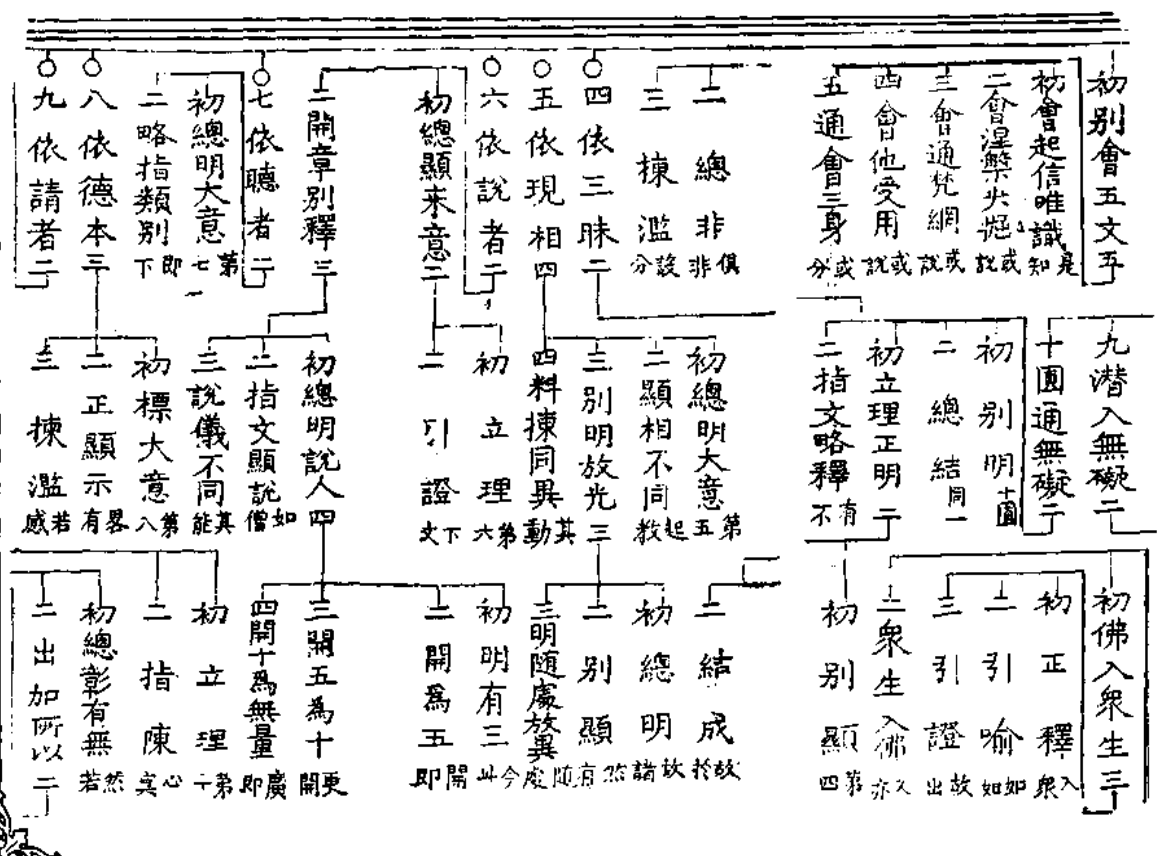 初別會五文五
初會起信唯識是知
二會涅槃
三會通梵網或說
四會他受用或說
五通會三身或分
二總非俱非
三揀濫設分
○四依三昧二
○五依現相四
○六依說者二
初總顯來意二
二開章別釋三
○七依聽者二
初總明大意第七
二略指類別即下
○八依德本三
○九依請者二
九潛入無礙二
十圓通無礙二
初別明十圓
二總結同一
初立理正明二
二指文略釋有不
初總明大意第五
二顯相不同起教
三別明放光三
四料揀同異其動
初立理第六
二引證下文
初總明說人四
二指文顯說如僧
三說儀不同其能
初標大意第八
二正顯示畧有
三揀濫若感
初佛入眾生三
初正釋入眾
二引喻如如
三引證故出
二眾生入佛又亦
初別顯第四
二結成故於
初總明故諸
二別顯然有
三明隨處放異隨處
初明有三今此
二開為五開即
三開五為十更開
四開十為無量廣即
初立理第十
二指陳心真
初總彰有無然若
二出加所以二